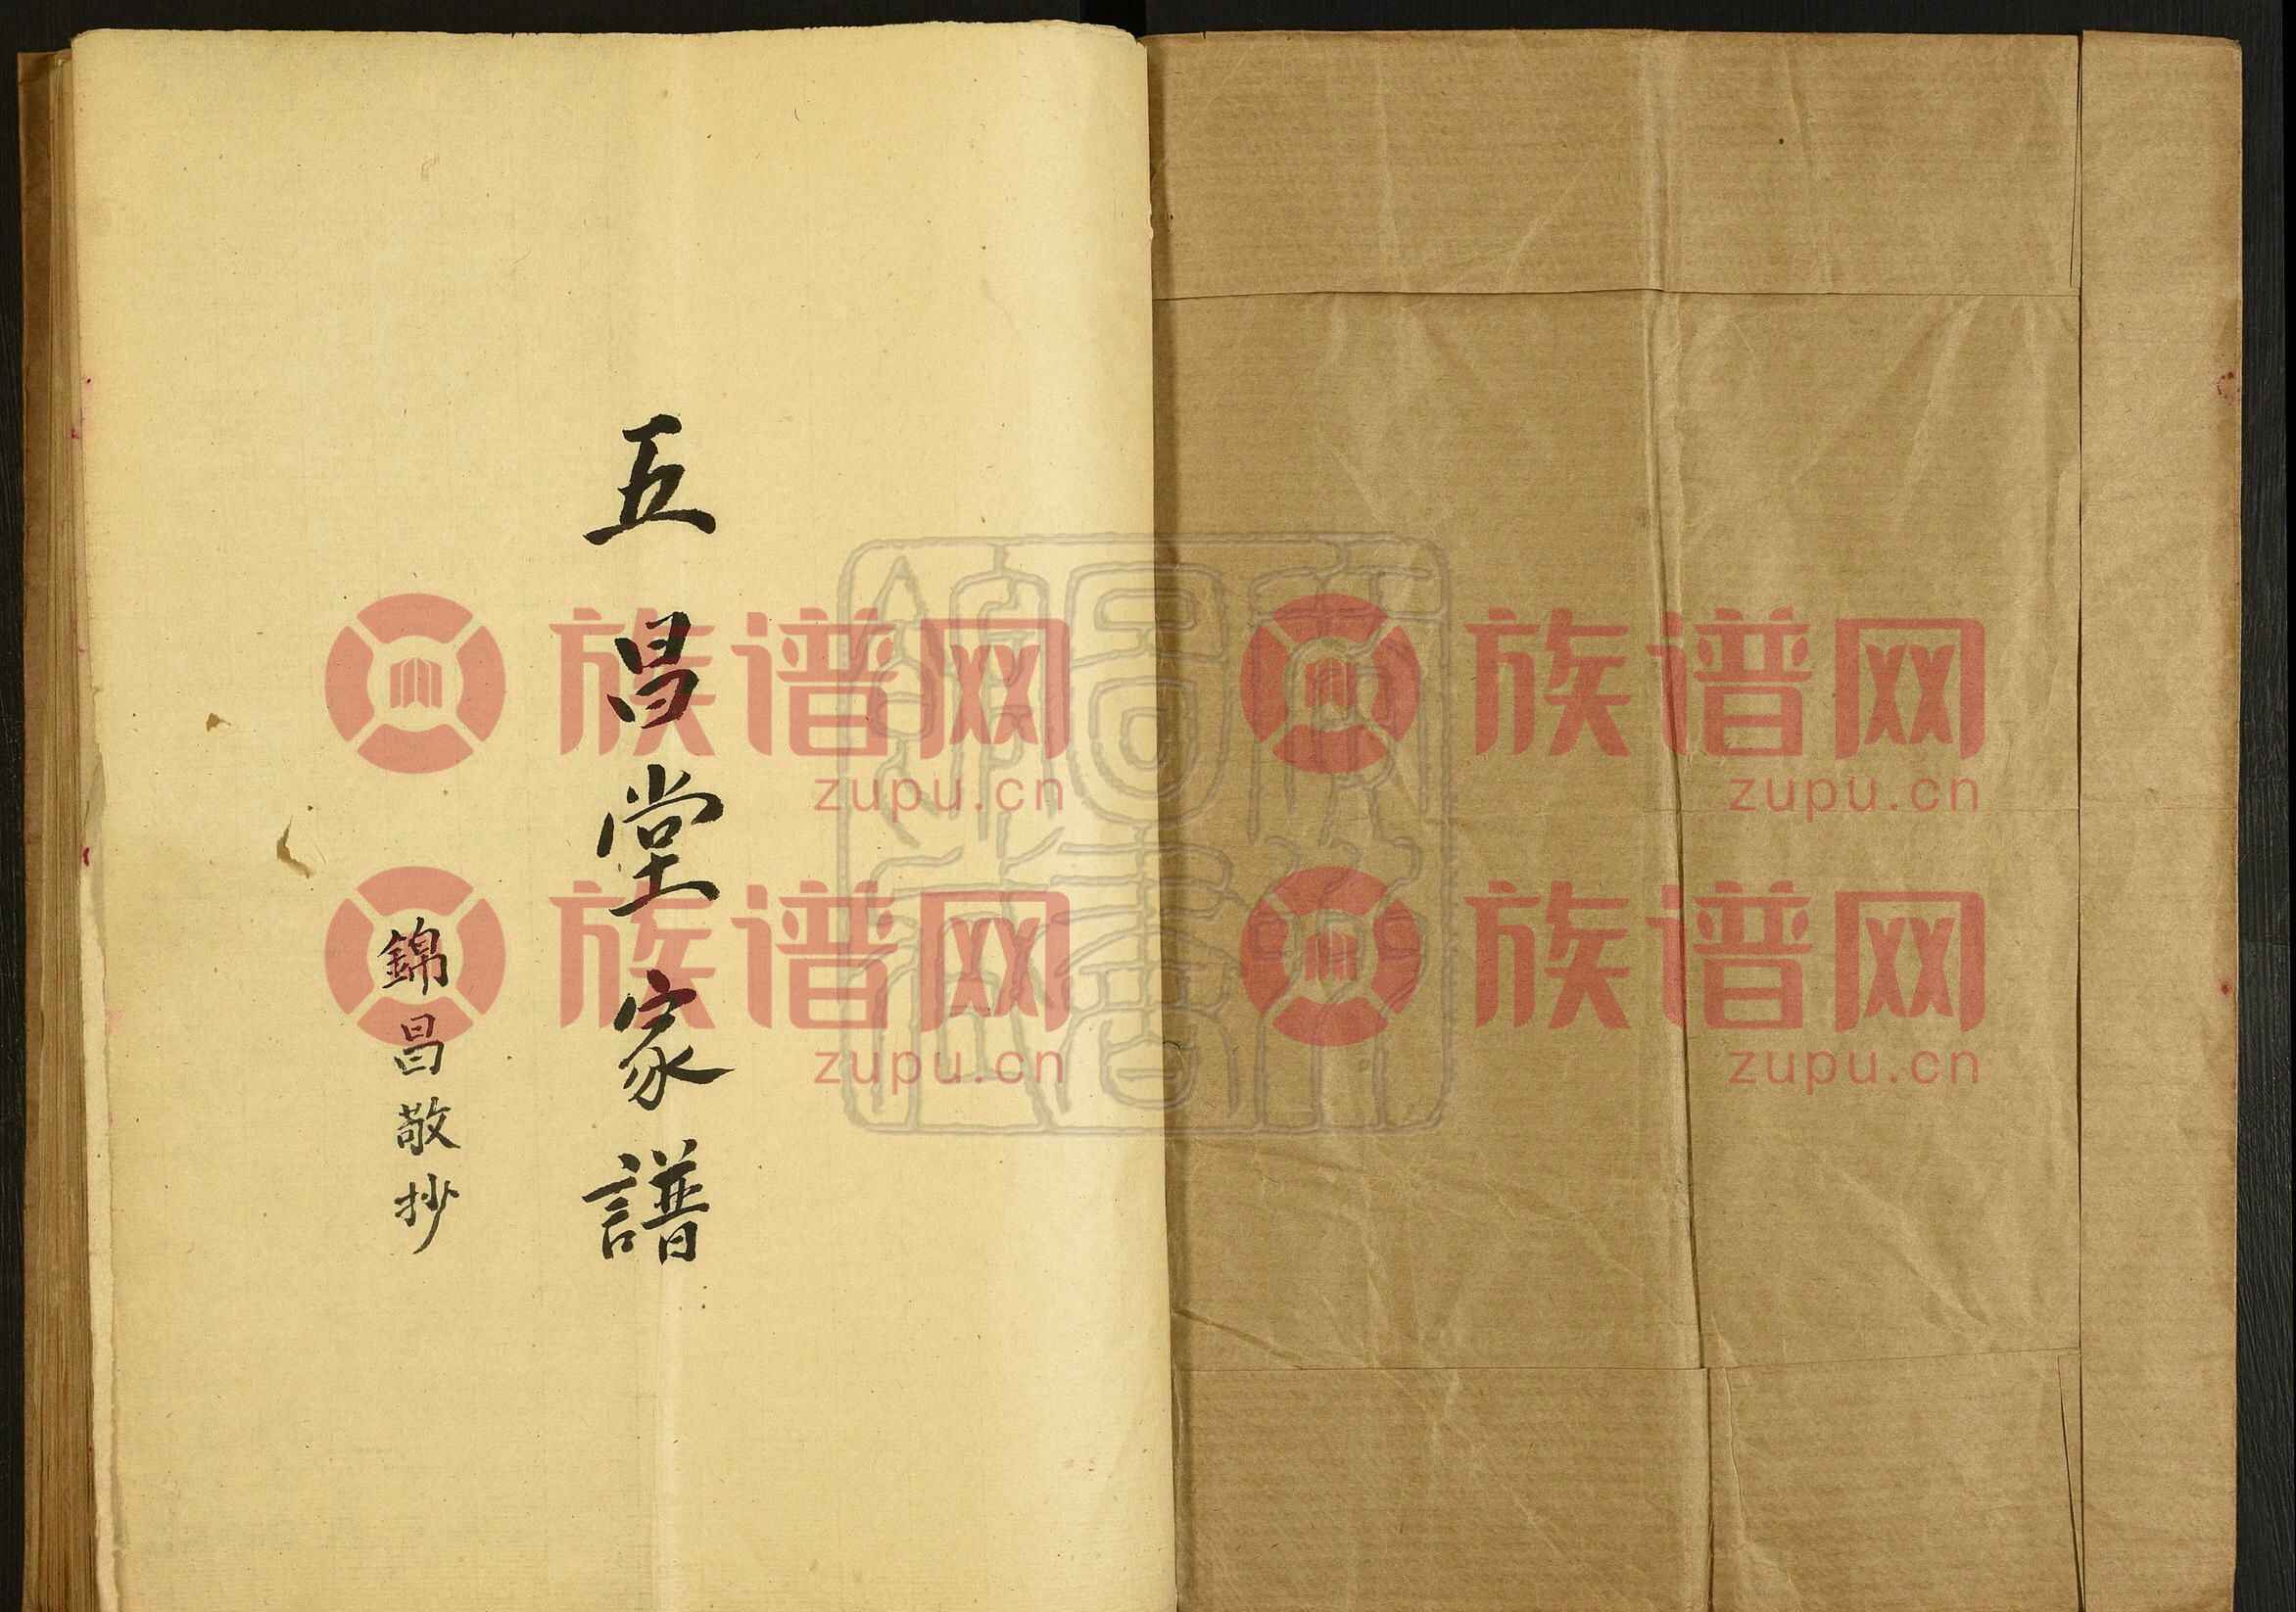 五昌堂家譜
錦昌敬抄
族谱网 zupu.cn
族谱网 zupu.cn
族谱网 zupu.cn
族谱网 zupu.cn